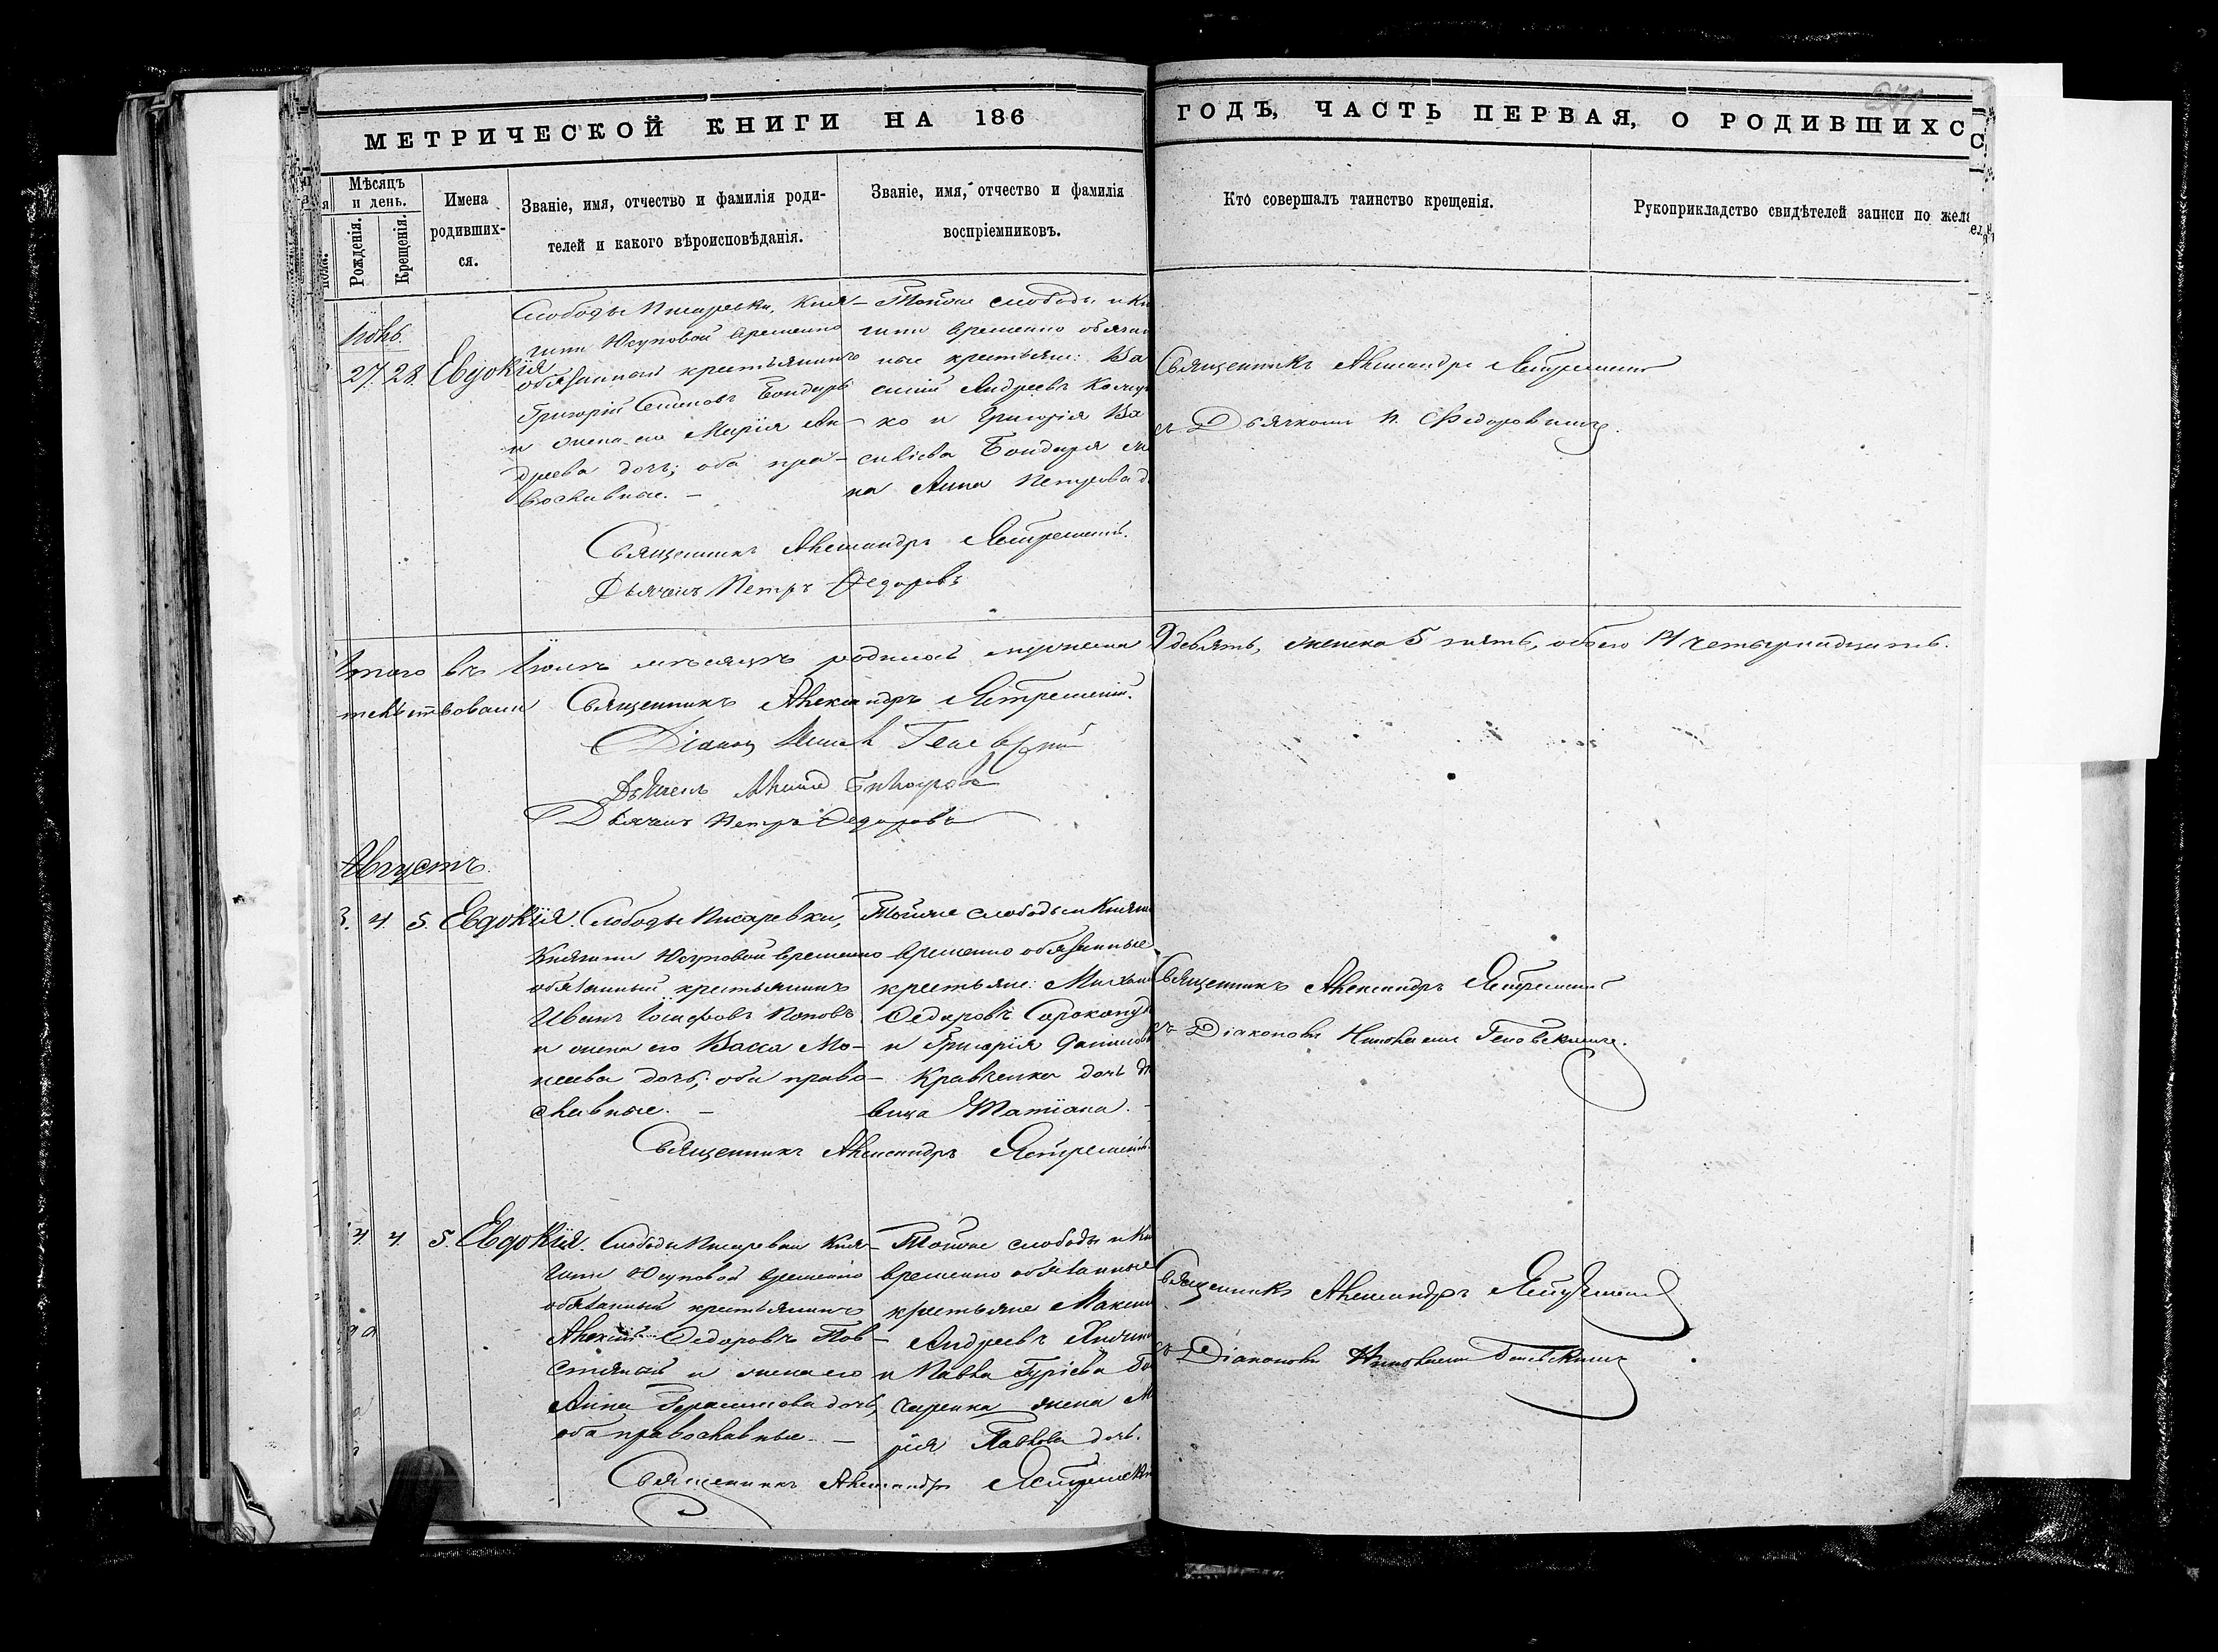 МЕТРИЧЕСКОЙ КНИГИ НА 186
ГОДЪ, ЧАСТЬ ПЕРВАЯ, О РОДИВШИХС
Мѣсяцъ
и день.
Рожденія.
Крещенія.
Имена
родивших-
ся.
Званіе, имя, отчество и фамилія роди-
телей и какого вѣроисповѣданія.
Званіе, имя, отчество и фамилія
воспріемниковъ.
Кто совершалъ таинство крещенія.
Рукоприкладство свидѣтелей записи по жела
27. 28. Евдокія
Слободы Писаревки, Кня-
гини Юсуповой временно
обязанный крестьянинъ
Григорій Семеновъ Бондарь
и жена его Марія Ан-
дреева дочь; оба пра-
вославные. —
Тойже слободы и Кн
гини временно обязан
ные крестьяне: Ва
силій Андреевъ
ко и Григорія Ва
силіева Бондаря же
на Анна Петрова д
Священникъ Александръ
съ Дьячкомъ П. Федоровымъ.
Священникъ Александръ
Дьячекъ Петръ Федоровъ
Итого въ Іюлѣ мѣсяцѣ родилось мужеска
9 девять, женска 5 пять, обоего 14 четырнадцать.
Священникъ Александръ
Діаконъ
Дьячекъ
Дьячекъ Петръ Федоровъ
Августъ.
3. 4. 5. Евдокія.
Слободы Писаревки,
Княгини Юсуповой временно
обязанный крестьянинъ
Иванъ Іосифовъ Поповъ
и жена его Васса Мо-
исеева дочь; оба право-
славные. —
Тойже слободы и Княги
временно обязанные
крестьяне: Михаил
Федоровъ Сорокопуд
и Григорія Данилов
Кравченка дочь дѣ
вица Татіана. —
Священникъ Александръ
съ Діакономъ Николаемъ
Священникъ Александръ
4. 4. 5. Евдокія.
Слободы Писаревки Кня-
гини Юсуповой временно
обязанный крестьянинъ
Алексій Федоровъ Пов-
стяный и жена его
Анна Герасимова дочь,
оба православные. —
Тойже слободы и Кн
временно обязанные
крестьяне Максим
Андреевъ
и Павла Гурієва Го
чаренка жена Ма
рія Павлова дочь.
Священникъ Александръ
съ Діакономъ Николаемъ
Священникъ Александръ